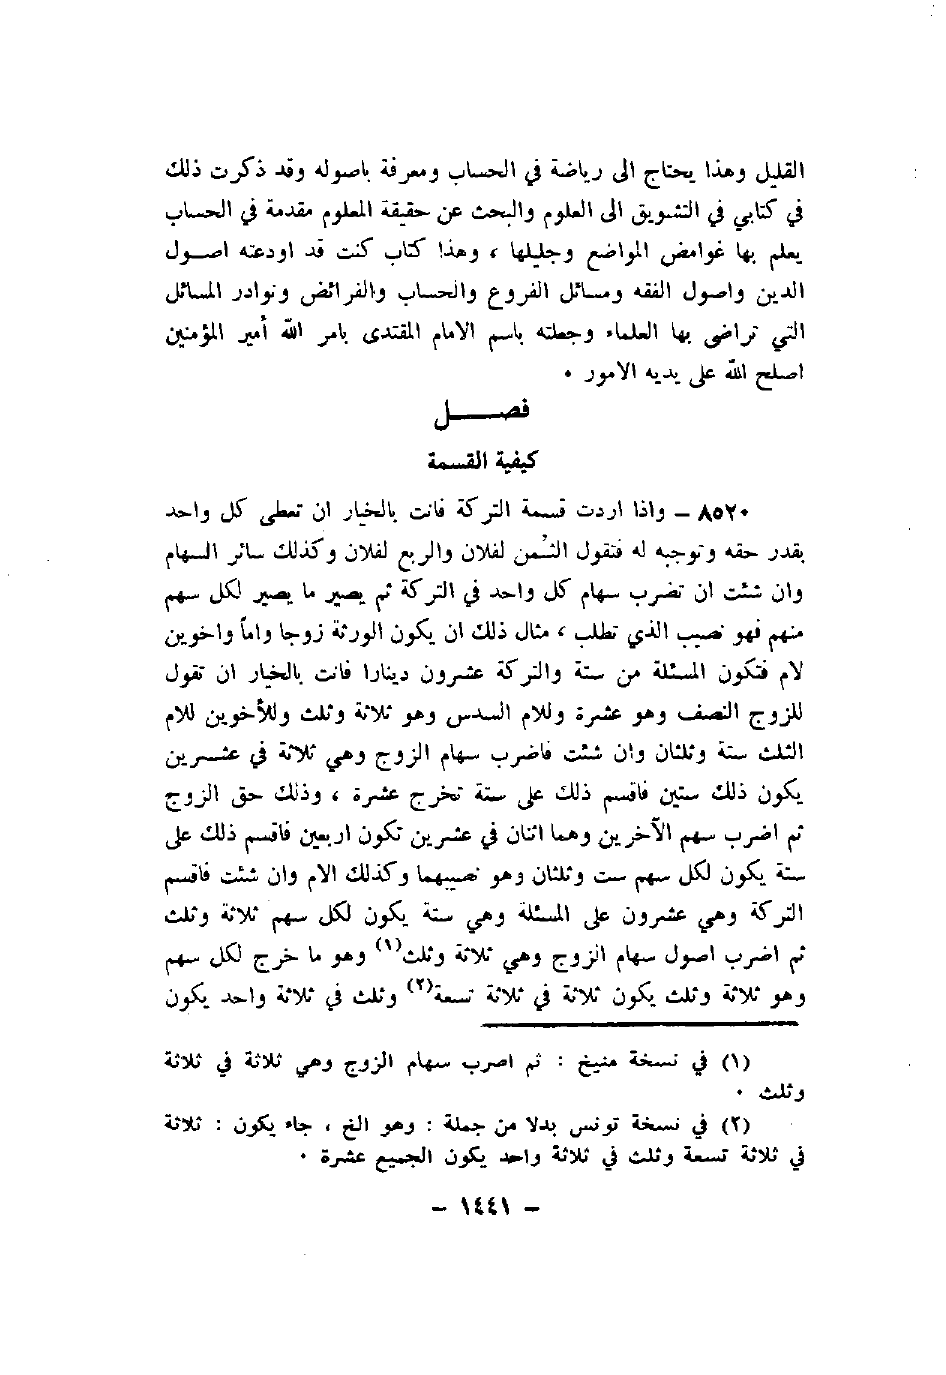 القليل وهذا يحتاج الى رياضة في الحساب ومعرفة باصوله وقد ذكرت ذلك
في كتابي في التشويق الى العلوم والبحث عن حقيقة المعلوم مقدمة في الحساب
يعلم بها غوامض المواضع وجليلها ، وهذا كتاب كنت قد اودعته اصول
الدين واصول الفقه ومسائل الفروع والحساب والفرائض ونوادر المسائل
التي تراضى بها العلماء وجعلته باسم الامام المقتدى بامر الله أمير المؤمنين
اصلح الله على يديه الامور .
فصل
كيفية القسمة
٨٥٢٠ – واذا اردت قسمة التركة فانت بالخيار ان تعطى كل واحد
بقدر حقه وتوجبه له فتقول الثُمن لفلان والربع لفلان وكذلك سائر السهام
وان شئت ان تضرب سهام كل واحد في التركة ثم يصير ما يصير لكل سهم
منهم فهو نصيب الذي تطلب ، مثال ذلك ان يكون الورثة زوجا واماً واخوين
لام فتكون المسئلة من ستة والتركة عشرون دينارا فانت بالخيار ان تقول
للزوج النصف وهو عشرة وللام السدس وهو ثلاثة وثلث وللأخوين للام
الثلث ستة وثلثان وان شئت فاضرب سهام الزوج وهي ثلاثة في عشرين
يكون ذلك ستين فاقسم ذلك على ستة تخرج عشرة ، وذلك حق الزوج
ثم اضرب سهم الآخرين وهما اثنان في عشرين تكون اربعين فاقسم ذلك على
ستة يكون لكل سهم ست وثلثان وهو نصيبهما وكذلك الام وان شئت فاقسم
التركة وهي عشرون على المسئلة وهي ستة يكون لكل سهم ثلاثة وثلث
ثم اضرب اصول سهام الزوج وهي ثلاثة وثلث(١) وهو ما خرج لكل سهم
وهو ثلاثة وثلث يكون ثلاثة في ثلاثة تسعة(٢) وثلث في ثلاثة واحد يكون
(١) في نسخة منيخ : ثم اصرب سهام الزوج وهي ثلاثة في ثلاثة
وثلث .
(٢) في نسخة تونس بدلا من جملة : وهو الخ ، جاء يكون : ثلاثة
في ثلاثة تسعة وثلث في ثلاثة واحد يكون الجميع عشرة .
– ١٤٤١ –